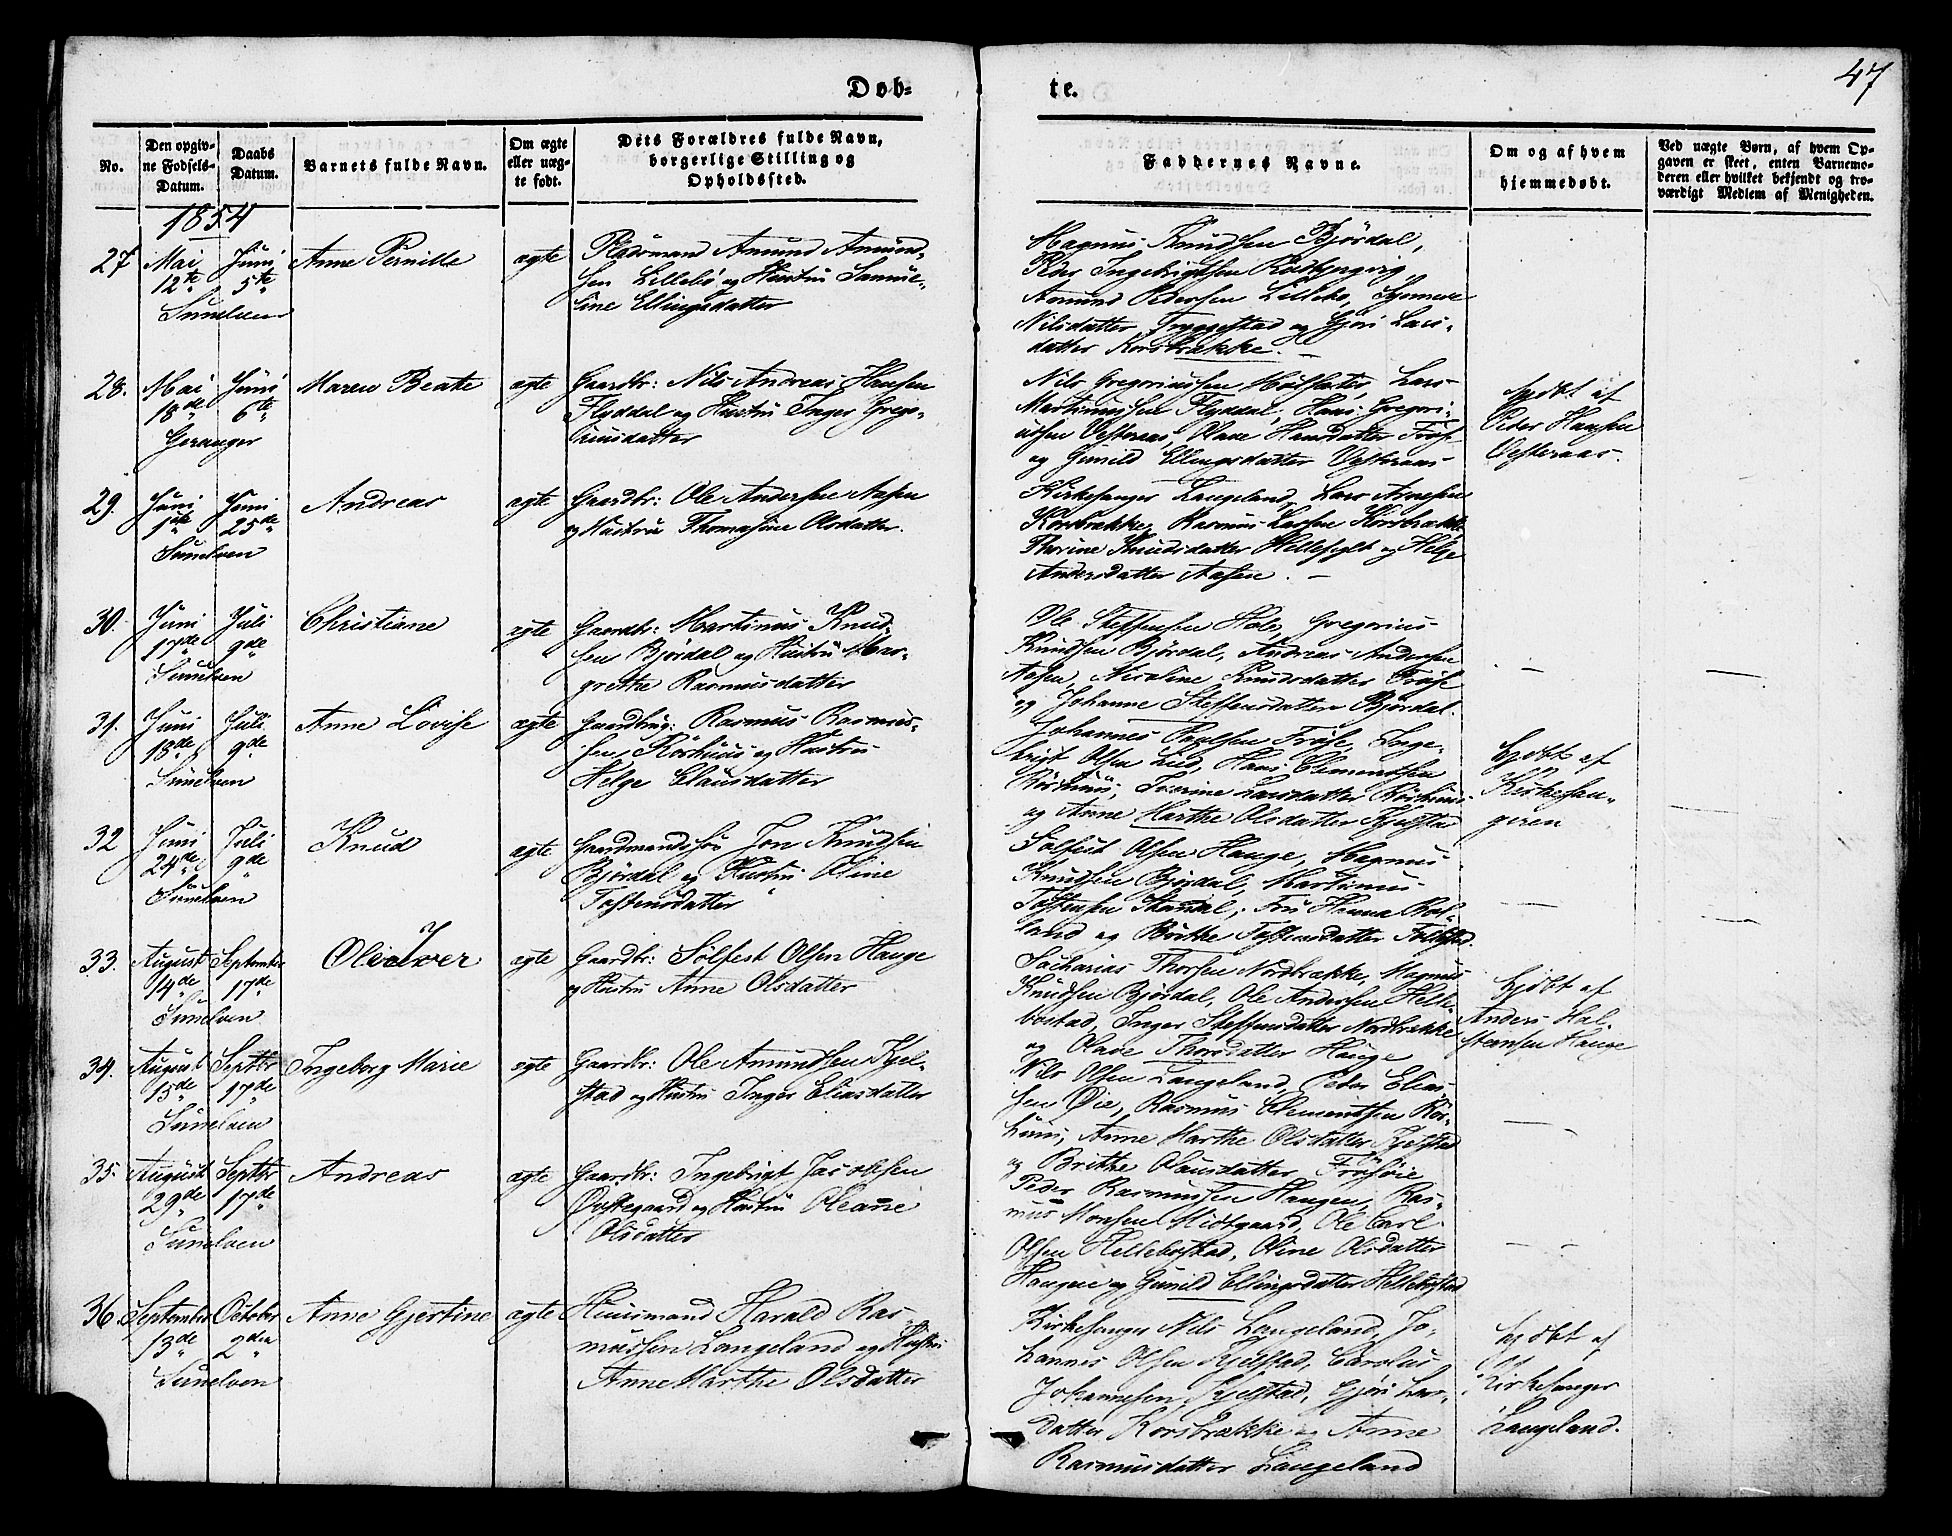 Døb=
te.
47
No.
Den opgiv-
ne Fødsels-
Datum.
Daabs
Datum.
Barnets fulde Navn.
Om ægte
eller uæg-
te født.
Dets Forældres fulde Navn,
borgerlige Stilling og
Opholdssted.
Faddernes Navne.
Om og af hvem
hjemmedøbt.
Ved uægte Børn, af hvem Op-
gaven er skeet, enten Barnemo-
deren eller hvilket bekjendt og tro-
værdigt Medlem af Menigheden.
1854
27
Mai
12te
Juni
5te
Sunelven
Anne Pernille
ægte
Amund Amund-
sen Lillebø og Hustru Samue-
line Ellingsdatter
Magnus Knudsen Bjørdal,
Peder Ingebrigtsen
Amund Pedersen Lillebø, Synneve
Nilsdatter Tryggestad og Gjøri Lars-
datter Korsbrække. –
28.
Mai
18de
Juni
6te
Geranger
Maren Beate
ægte
Gaardbr: Nils Andreas Hansen
Flyddal og Hustru Inger Grego-
riusdatter
Nils Gregoriussen Hølsæter, Lars
Martinussen Flyddal, Hans Gregori-
ussen Vesteraas, Olave Hansdatter
og Gunild Ellingsdatter Vesteraas
hjdbt af
Peder Hansen
Vesteraas.
29.
Juni
1ste
Juni
25de
Sunelven
Andreas
ægte
Gaardbr: Ole Andersen Aasen
og Hustru Thomasine Olsdatter.
Kirkesanger Langeland, Lars Arnesen
Korsbrække, Rasmus Larsen Korsbrække
Thorine Knudsdatter Hellesylt og Helge
Andersdatter Aasen. –
30.
Juni
17de
Juli
9de
Sunelven
Christiane
ægte
Gaardbr: Martinus Knud-
sen Bjørdal og Hustru Mar-
grethe Rasmusdatter
Ole Steffensen Hole, Gregorius
Knudsen Bjørdal, Andreas Andersen
Aasen, Nicoline Knudsdatter Frøse
og Johanne Steffensdatter Bjørdal.
– –
31.
Juni
18de
Juli
9de
Sunelven
Anne Lovise
ægte
Gaardbrug: Rasmus Rasmus-
sen Røshuus og Hustru
Helge Clausdatter
Johannes Paulsen Frøse, Inge-
brigt Olsen Lied, Hans Clementsen
Røshuus, Severine Larsdatter Røshuus
og Anne Marthe Olsdatter Kjelstad
hjdbt af
Kirkesan-
geren
32
Juni
24de
Juli
9de
Sunelven
Knud
ægte
Gaardmandssøn Jon Knudsen
Bjørdal og Hustru Oline
Tostensdatter
Solfest Olsen Hauge, Magnus
Knudsen Bjørdal, Martinus
Tostensen Standal, Fru Hanna
og Birthe Tostensdatter
– –
33.
August
14de
September
17de
Sunelven
Ole Iver
ægte
Gaardbr: Solfest Olsen Hauge
og Hustru Anne Olsdatter
Sacharias Thorsen Nordbrække, Magnus
Knudsen Bjørdal, Ole Andersen Helle-
bostad, Inger Steffensdatter Nordbrække
og Olave Thorsdatter Hauge
hjdbt af
Anders Hal-
stensen Hauge
34.
August
15de
Septbr
17de
Sunelven
Ingeborg Marie
ægte
Gaardbr: Ole Amundsen Kjel-
stad og Hustru Inger Eliasdatter
Nils Olsen Langeland, Peder Elias-
sen Øie, Rasmus Clementsen Røs-
huus, Anne Marthe Olsdatter Kjelstad
og Brithe Clausdatter Frøsøie
– –
35.
August
29de
Septbr
17de
Sunelven
Andreas
ægte
Gaardbr: Ingebrigt Jacobsen
Øvstegaard og Hustru Oleane
Olsdatter
Peder Rasmussen Haugen, Ras-
mus Monsen Midtgaard, Ole Carl
Olsen Hellebostad, Oline Olsdatter
Haugen og Gunild Ellingsdatter Hellebostad
– –
36.
September
13de
October
2den
Sunelven
Anne Gjertine
ægte
Huusmand Harald Ras-
mussen Langeland og Hustru
Anne Marthe Olsdatter
Kirkesanger Nils Langeland, Jo-
hannes Olsen Kjelstad, Carolus
Johannesen Kjelstad, Gjøri Lar-
datter Korsbrække og Anne
Rasmusdatter Langeland
hjdbt af
Kirkesanger
Langeland.